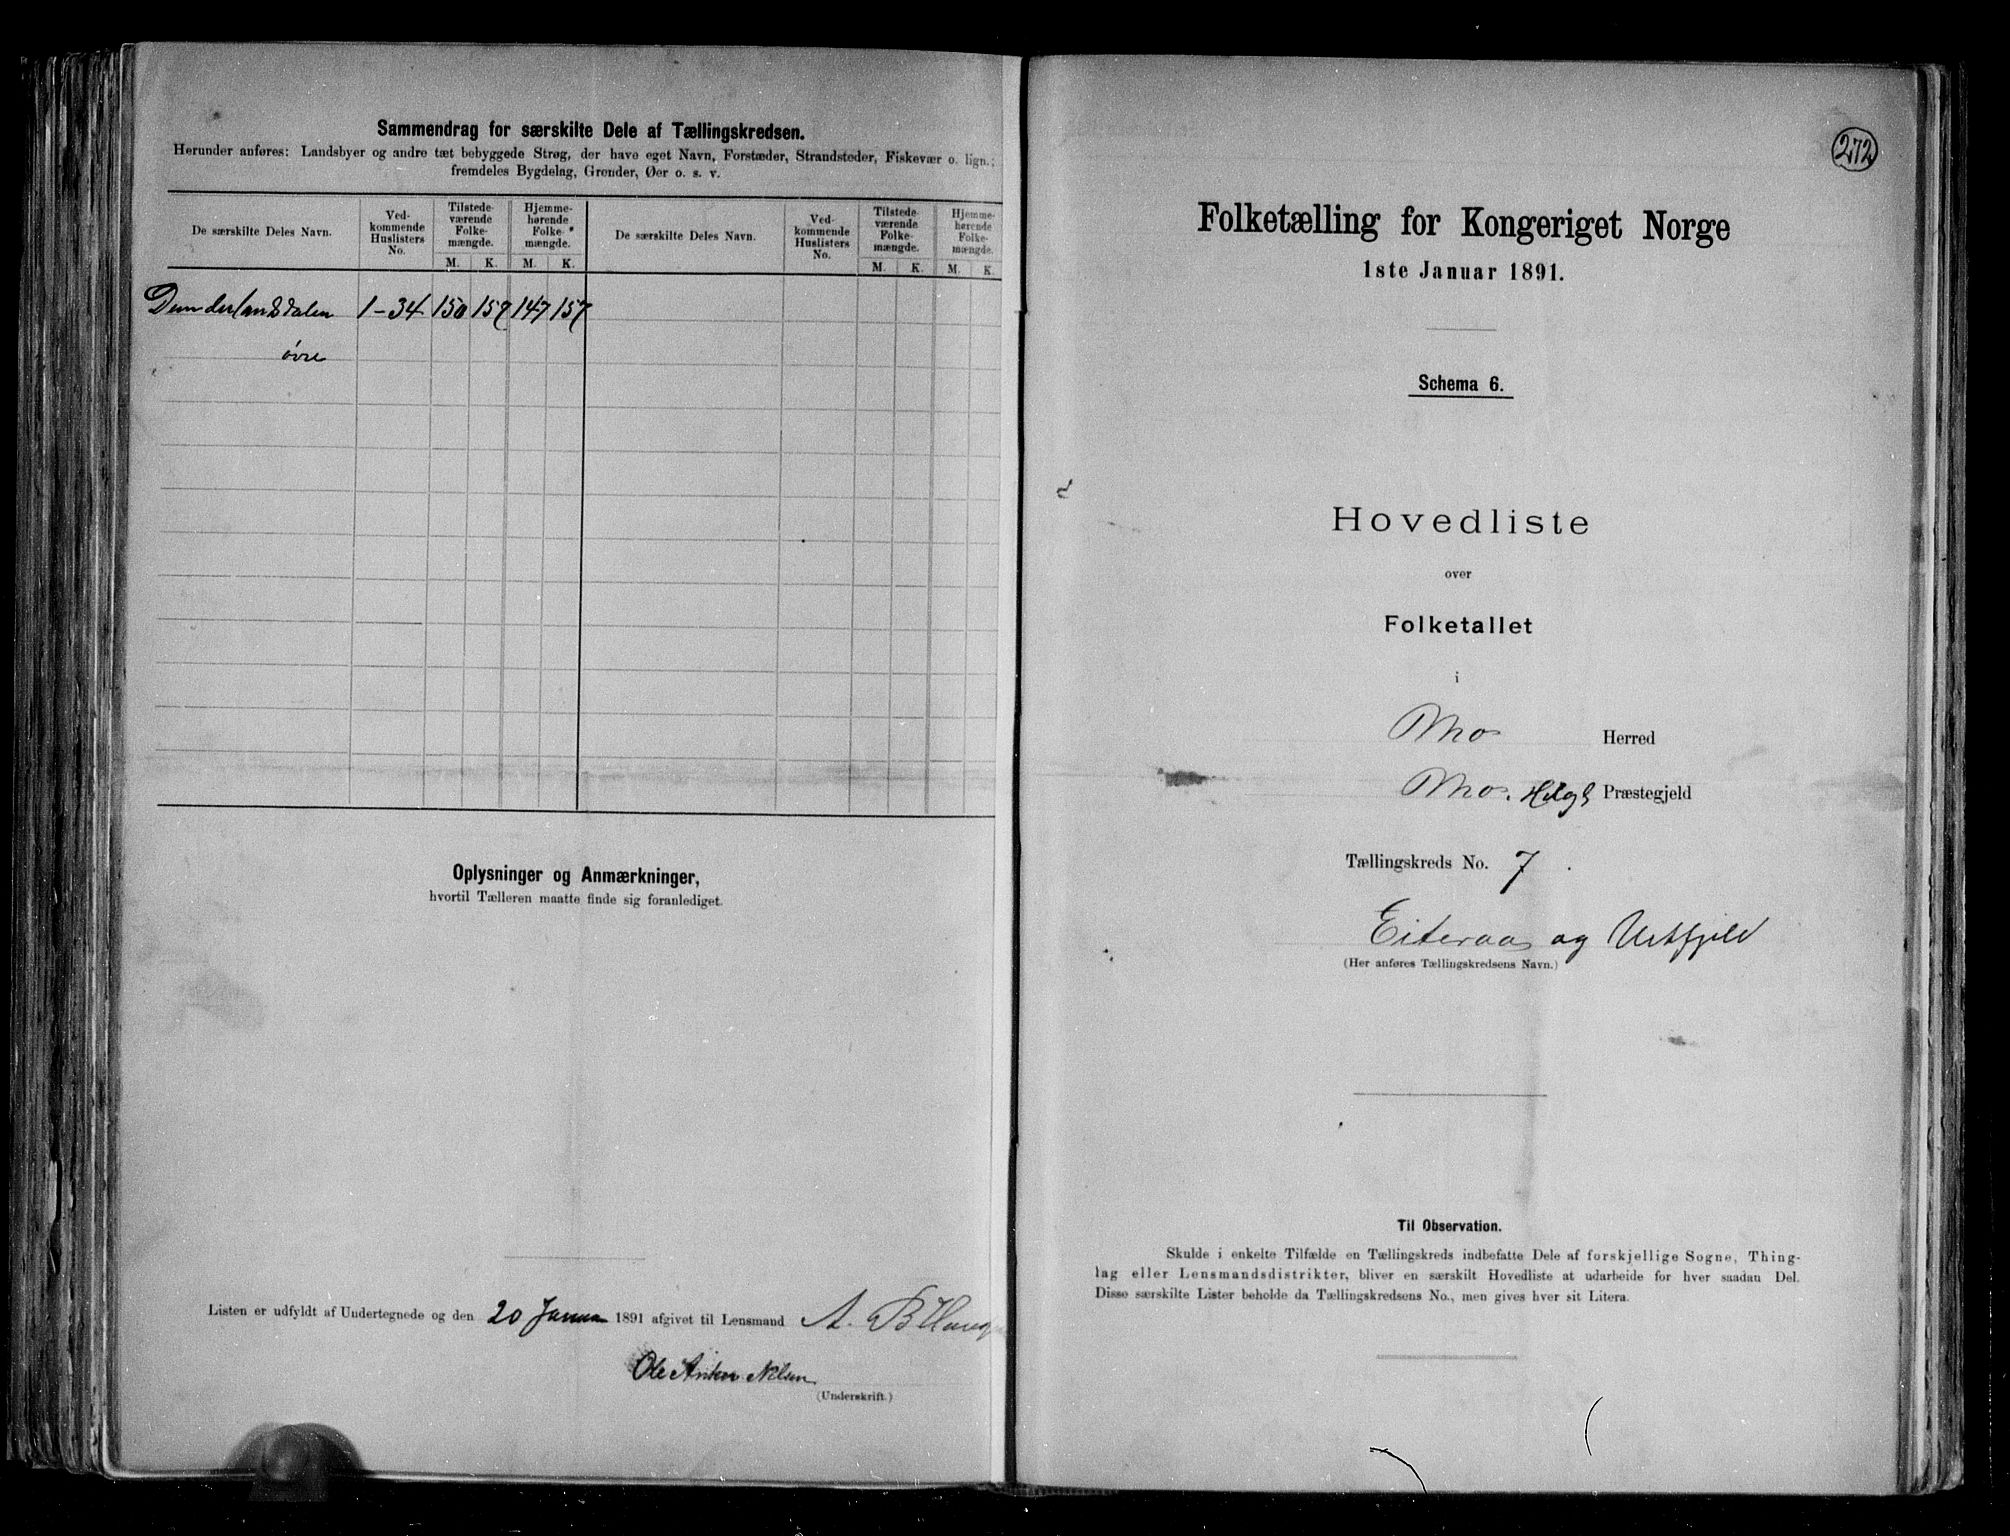 Sammendrag for særskilte Dele af Tællingskredsen.
Herunder anføres: Landsbyer og andre tæt bebyggede Strøg, der have eget Navn, Forstæder, Strandsteder, Fiskevær o. lign.;
fremdeles Bygdelag, Grender, Øer o. s. v.
De særskilte Deles Navn.
Ved-
kommende
Huslisters
No.
Tilstede-
værende
Folke-
mængde.
M. K.
Hjemme-
hørende
Folke-
mængde.
M. K.
De særskilte Deles Navn.
Ved-
kommende
Huslisters
No.
Tilstede-
værende
Folke-
mængde.
M. K.
Hjemme-
hørende
Folke-
mængde.
M. K.
Dunderlandsdalen 1-34 150 157 147 157
øvre
Oplysninger og Anmærkninger,
hvortil Tælleren maatte finde sig foranlediget.
Listen er udfyldt af Undertegnede og den 20 Januar 1891 afgivet til Lensmand A. B
Ole Anker Nilsen
(Underskrift.)
272
Folketælling for Kongeriget Norge
1ste Januar 1891.
Schema 6.
Hovedliste
over
Folketallet
i
Mo Herred
Mo. Helgl Præstegjeld
Tællingskreds No. 7.
Eiteraa og Urtfjeld
(Her anføres Tællingskredsens Navn.)
Til Observation.
Skulde i enkelte Tilfælde en Tællingskreds indbefatte Dele af forskjellige Sogne, Thing-
lag eller Lensmandsdistrikter, bliver en særskilt Hovedliste at udarbeide for hver saadan Del.
Disse særskilte Lister beholde da Tællingskredsens No., men gives hver sit Litera.